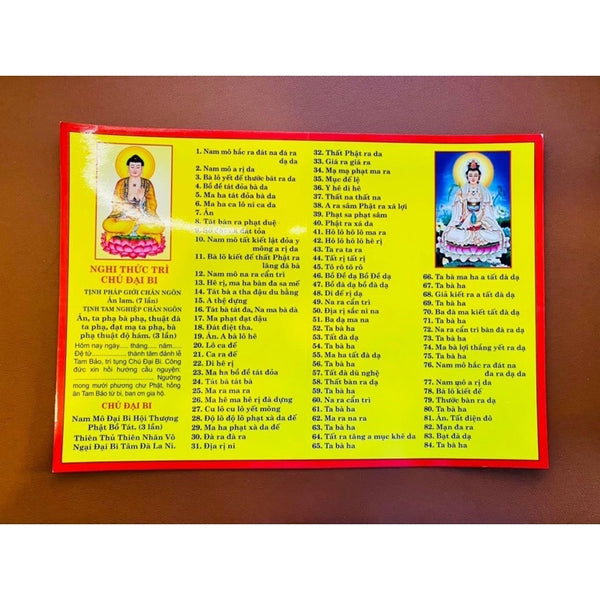 NGHI THỨC TRÌ
CHÚ ĐẠI BI
TỊNH PHÁP GIỚI CHÂN NGÔN
Án lam. (7 lần)
TỊNH TAM NGHIỆP CHÂN NGÔN
Án, ta phạ bà phạ, thuật đà
ta phạ, đạt mạ ta phạ, bà
phạ thuật độ hám. (3 lần)
Hôm nay ngày..... tháng..... năm.....
Đệ tử............. thành tâm đảnh lễ
Tam Bảo, trì tụng Chú Đại Bi. Công
đức xin hồi hướng cầu nguyện:
Ngưỡng
mong mười phương chư Phật, hồng
ân Tam Bảo từ bi, ban cơn gia hộ.
CHÚ ĐẠI BI
Nam Mô Đại Bi Hội Thượng
Phật Bồ Tát. (3 lần)
Thiên Thủ Thiên Nhãn Vô
Ngại Đại Bi Tâm Đà La Ni.
1. Nam mô hắc ra đát na đá ra
dạ da
2. Nam mô a rị da
3. Bà lô yết đế thước bát ra da
4. Bồ đề tát đỏa bà da
5. Ma ha tát đỏa bà da
6. Ma ha ca lô ni ca da
7. Án
8. Tát bàn ra phạt duệ
9. đát tỏa
10. Nam mô tất kiết lật đỏa y
mông a rị da
11. Bà lô kiết đế thất Phật ra
lăng đà bà
12. Nam mô na ra cẩn trì
13. Hê rị, ma ha bàn đa sa mế
14. Tát bà a tha đậu du bằng
15. A thệ dựng
16. Tát bà tát đa, Na ma bà dà
17. Ma phạt đạt đậu
18. Đát điệt tha.
19. Án. A bà lô hê
20. Lô ca đế
21. Ca ra đế
22. Di hê rị
23. Ma ha bồ đề tát đỏa
24. Tát bà tát bà
25. Ma ra ma ra
26. Ma hê ma hê rị đà dựng
27. Cu lô cu lô yết mông
28. Độ lô độ lô phạt xà da đế
29. Ma ha phạt xà da đế
30. Đà ra đà ra
31. Địa rị ni
32. Thất Phật ra da
33. Giá ra giá ra
34. Mạ mạ phạt ma ra
35. Mục đế lệ
36. Y hê di hê
37. Thất na thất na
38. A ra sâm Phật ra xá lợi
39. Phạt sa phạt sâm
40. Phật ra xá da
41. Hô lô hô lô ma ra
42. Hô lô hô lô hê rị
43. Ta ra ta ra
44. Tất rị tất rị
45. Tô rô tô rô
46. Bồ Đề dạ Bồ Đề dạ
47. Bồ đà dạ bồ đà dạ
48. Di đế rị dạ
49. Na ra cẩn trì
50. Địa rị sắc ni na
51. Ba dạ ma na
52. Ta bà ha
53. Tất đà dạ
54. Ta bà ha
55. Ma ha tất đà dạ
56. Ta bà ha
57. Tất đà dũ nghệ
58. Thất bàn ra dạ
59. Ta bà ha
60. Na ra cẩn trì
61. Ta bà ha
62. Ma ra na ra
63. Ta bà ha
64. Tất ra tăng a mục khê da
65. Ta bà ha
66. Ta bà ma ha a tất đà dạ
67. Ta bà ha
68. Giả kiết ra a tất đà dạ
69. Ta bà ha
70. Ba đà ma kiết tất đà dạ
71. Ta bà ha
72. Na ra cẩn trì bàn đà ra dạ
73. Ta bà ha
74. Ma bà lợi thắng yết ra dạ
75. Ta bà ha
76. Nam mô hắc ra đát na
đa ra dạ da
77. Nam mô a rị da
78. Bà lô kiết đế
79. Thước bàn ra dạ
80. Ta bà ha
81. Án. Tất điện đô
82. Mạn đa ra
83. Bạt đà dạ
84. Ta bà ha